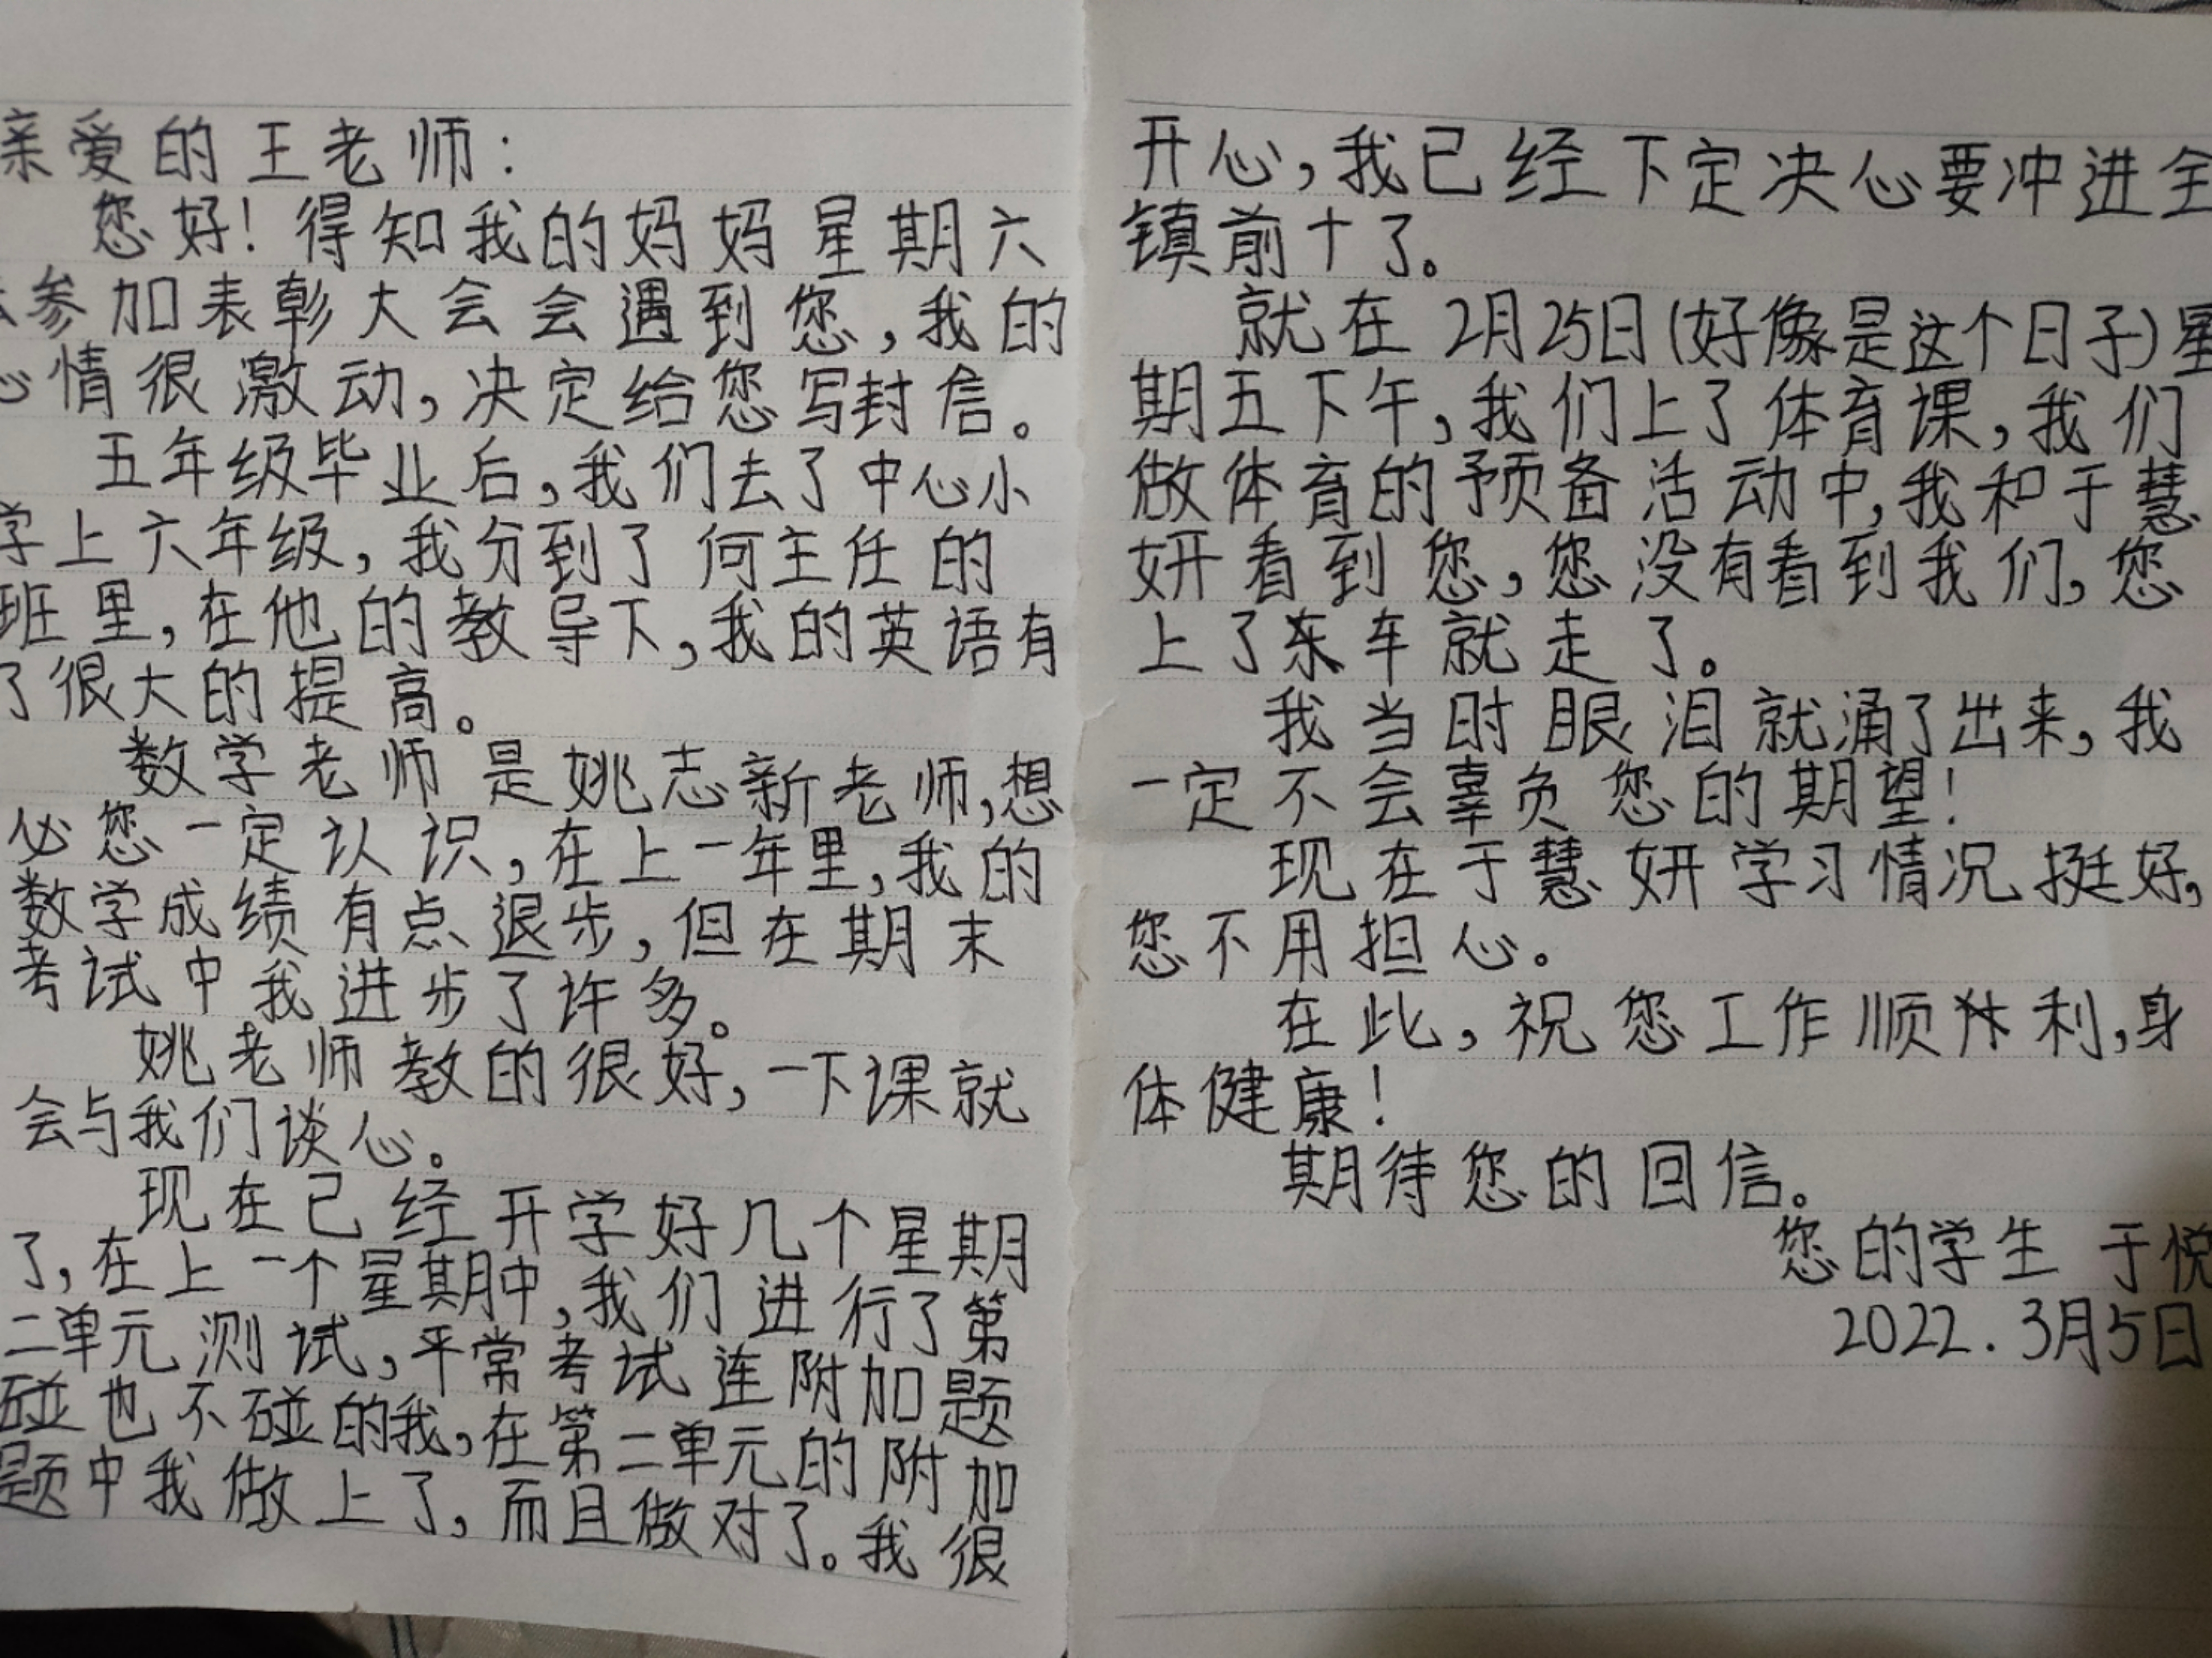 亲爱的王老师：
您好！得知我的妈妈星期六
去参加表彰大会会遇到您，我的
心情很激动，决定给您写封信。
五年级毕业后，我们去了中心小
学上六年级，我分到了何主任的
班里，在他的教导下，我的英语有
了很大的提高。
数学老师是姚志新老师，想
必您一定认识，在上一年里，我的
数学成绩有点退步，但在期末
考试中我进步了许多。
姚老师教的很好，一下课就
会与我们谈心。
现在已经开学好几个星期
了，在上一个星期中，我们进行了第
二单元测试，平常考试连附加题
碰也不碰的我，在第二单元的附加
题中我做上了，而且做对了。我很
开心，我已经下定决心要冲进全
镇前十了。
就在2月25日（好像是这个日子）星
期五下午，我们上了体育课，我们
做体育的预备活动中，我和于慧
妍看到您，您没有看到我们，您
上了车就走了。
我当时眼泪就涌了出来，我
一定不会辜负您的期望！
现在于慧妍学习情况挺好，
您不用担心。
在此，祝您工作顺利，身
体健康！
期待您的回信。
您的学生 于悦
2022.3月5日